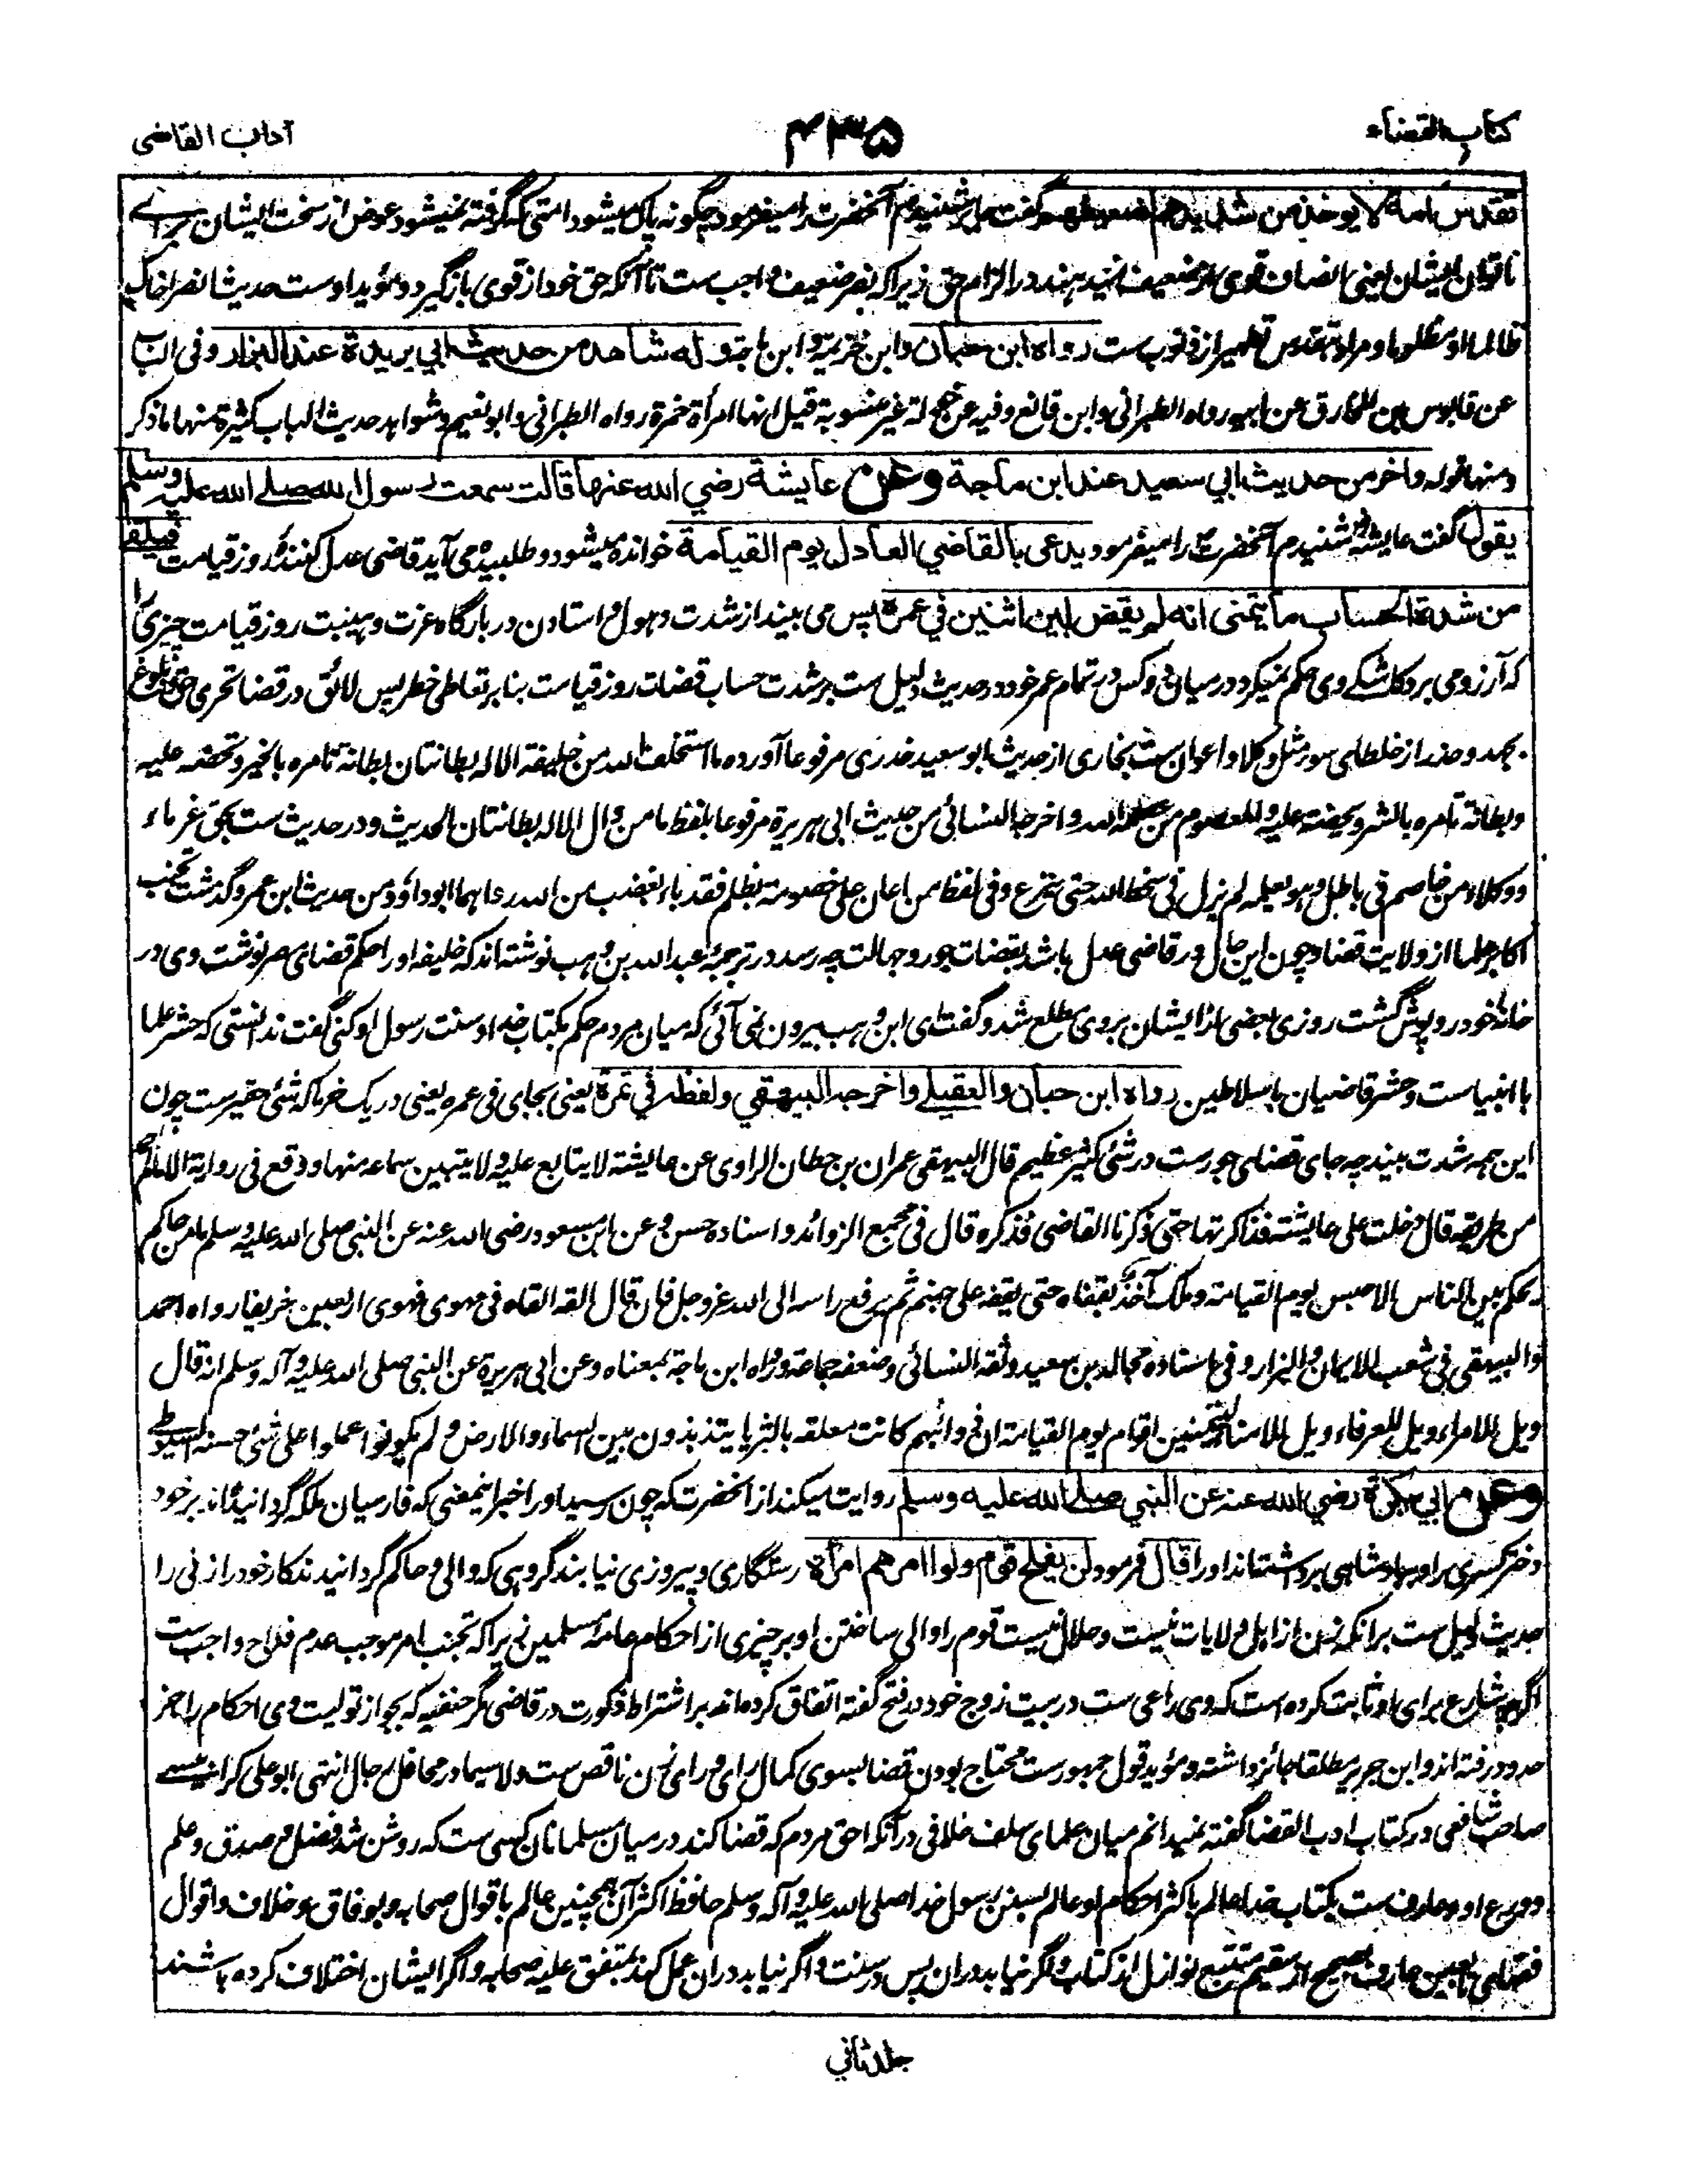 کتاب القضاء
۴۳۵
آداب القاضی
تقدس امة لا یوخذ من شدیدهم لضعیفهم گفت جابر شنیدم آنحضرت را میفرمود چگونه پاک میشود امتی که گرفته نمیشود عوض از سخت ایشان برای
ناتوان ایشان یعنی انصاف قوی از ضعیف نمیدهند در الزام حق زیرا که نصر ضعیف واجب ست تا آنکه حق خود از قوی بازگیرد و مؤید اوست حدیث انصر اخاک
ظالما او مظلوما و مراد بتقدس تطهیر از ذنوب ست رواه ابن حبان وابن خزیمة وابن ماجة وله شاهد من حدیث ابي بریدة عند البزار وفی الباب
عن قابوس بن المخارق عن ابیه رواه الطبرانی وابن قانع وفیه عن خولة غیر منسوبة قیل انها امرأة حمزة رواه الطبرانی وابو نعیم و شواهد حدیث الباب کثیرة منها ما ذکر
ومنها قوله واخر من حدیث ابي سعید عند ابن ماجة وعن عایشة رضي الله عنها قالت سمعت رسول الله صلے الله علیه وسلم
یقول گفت عایشه شنیدم آنحضرت را میفرمود یدعی بالقاضي العادل یوم القیامة خوانده میشود و طلبیده می آید قاضی عدل کننده روز قیامت فیلقے
من شدة الحساب ما یتمنی انه لم یقض بین اثنین في عمره پس می بیند از شدت و هول و استادن در بارگاه عزت و هیبت روز قیامت چیزی را
که آرزو می برد کاشکے وی حکم نمیکرد در میان دو کس در تمام عمر خود در حدیث دلیل ست بر شدت حساب قضات روز قیامت بنا بر تعاطی خطر پس لائق در قضا تحری حق و بلوغ
بجهد و حذر از خلطای سوء مثل وکلا و اعوان ست بخاری از حدیث ابو سعید خدری مرفوعا آورده ما استخلف الله من خلیفة الا له بطانتان بطانة تامره بالخیر و تحضه علیه
وبطانة تامره بالشر وتحضه علیه والمعصوم من عصمه الله واخرجه النسائی من حدیث ابی هریرة مرفوعا بلفظ ما من وال الا له بطانتان الحدیث و در حدیث ست بحق غرماء
ووکلاء من خاصم فی باطل وهو یعلمه لم یزل فی سخط الله حتی ینزع وفی لفظ من اعان علی خصومة بظلم فقد باء بغضب من الله رواهما ابو داؤد من حدیث ابن عمر و گذشت تجنب
اکابر علما از ولایت قضا و چون این حال در قاضی عدل باشد بقضات جور و جهالت چه رسد در ترجمۀ عبد الله بن وهب نوشته اند که خلیفه او را حکم قضای مصر نوشت وی در
خانۀ خود روپوش گشت روزی بعضی از ایشان بر وی مطلع شد و گفت ای ابن وهب بیرون نمی آئی که میان مردم حکم بکتاب خدا و سنت رسول او کنی گفت ندانستی که حشر علما
با انبیاست و حشر قاضیان با سلاطین رواه ابن حبان والعقیلے واخرجه البیهقي ولفظه في تمرة یعنی بجای فی عمره یعنی در یک خرما که شئی حقیر ست چون
این همه شدت بیند چه جای قضای جور ست در شئی کثیر عظیم قال البیهقی عمران بن حطان الراوی عن عایشة لا یتابع علیه ولا یتبین سماعه منها ووقع فی روایة الامام احمد
من طریقه قال دخلت علی عایشة فذاکرتها حتی ذکرنا القاضی فذکره قال فی مجمع الزوائد واسناده حسن وعن ابن مسعود رضی الله عنه عن النبی صلی الله علیه وسلم ما من حاکم
یحکم بین الناس الا حبس یوم القیامة وملک آخذ بقفاه حتی یقفه علی جهنم ثم یرفع راسه الی الله عز وجل فان قال القه القاه فی مهوی فهوی اربعین خریفا رواه احمد
والبیهقی فی شعب الایمان والبزار وفی اسناده مجالد بن سعید وثقه النسائی وضعفه جماعة ورواه ابن ماجة بمعناه وعن ابی هریرة عن النبی صلی الله علیه وآله وسلم انه قال
ویل للامراء ویل للعرفاء ویل للامناء لیتمنین اقوام یوم القیامة ان ذوائبهم کانت معلقة بالثریا یتذبذبون بین السماء والارض ولم یکونوا عملوا علی شئ حسنه السیوطے
وعن ابي بکرة رضي الله عنه عن النبي صلے الله علیه وسلم روایت میکند از آنحضرت که چون رسید او را خبر اینمعنی که فارسیان ملکه گردانیده اند بر خود
دختر کسری را و بپادشاهی برداشته اند او را قال فرمود لن یفلح قوم ولوا امرهم امرأة رستگاری و پیروزی نیابند گروهی که والی و حاکم گردانیدند کار خود را زنی را
حدیث دلیل ست بر آنکه زن از اهل ولایات نیست و حلال نیست قوم را والی ساختن او بر چیزی از احکام عامۀ مسلمین زیرا که تجنب امر موجب عدم فلاح واجب ست
اگرچه شارع برای او ثابت کرده است که وی راعی ست در بیت زوج خود در فتح گفته اتفاق کرده اند بر اشتراط ذکورت در قاضی مگر حنفیه که بجواز تولیت وی احکام را جز
حدود رفته اند و ابن جریر مطلقا جائز داشته و مؤید قول جمهور ست محتاج بودن قضا بسوی کمال رای و رای زن ناقص ست ولا سیما در محافل رجال انتهی ابو علی کرابیسے
صاحب شافعی در کتاب ادب القضا گفته نمیدانم میان علمای سلف خلافی در آنکه احق مردم که قضا کند در میان مسلمانان کسی ست که روشن شد فضل و صدق و علم
و ورع او و عارف ست بکتاب خدا عالم باکثر احکام او عالم بسنن رسول خدا صلی الله علیه وآله وسلم حافظ اکثر آن همچنین عالم باقوال صحابه و بوفاق و خلاف و اقوال
فقهای تابعین عارف صحیح از سقیم متتبع نوازل از کتاب و اگر نیابد در ان پس در سنت و اگر نیابد در ان عمل کند بمتفق علیه صحابه و اگر ایشان اختلاف کرده باشند
جلد ثاني